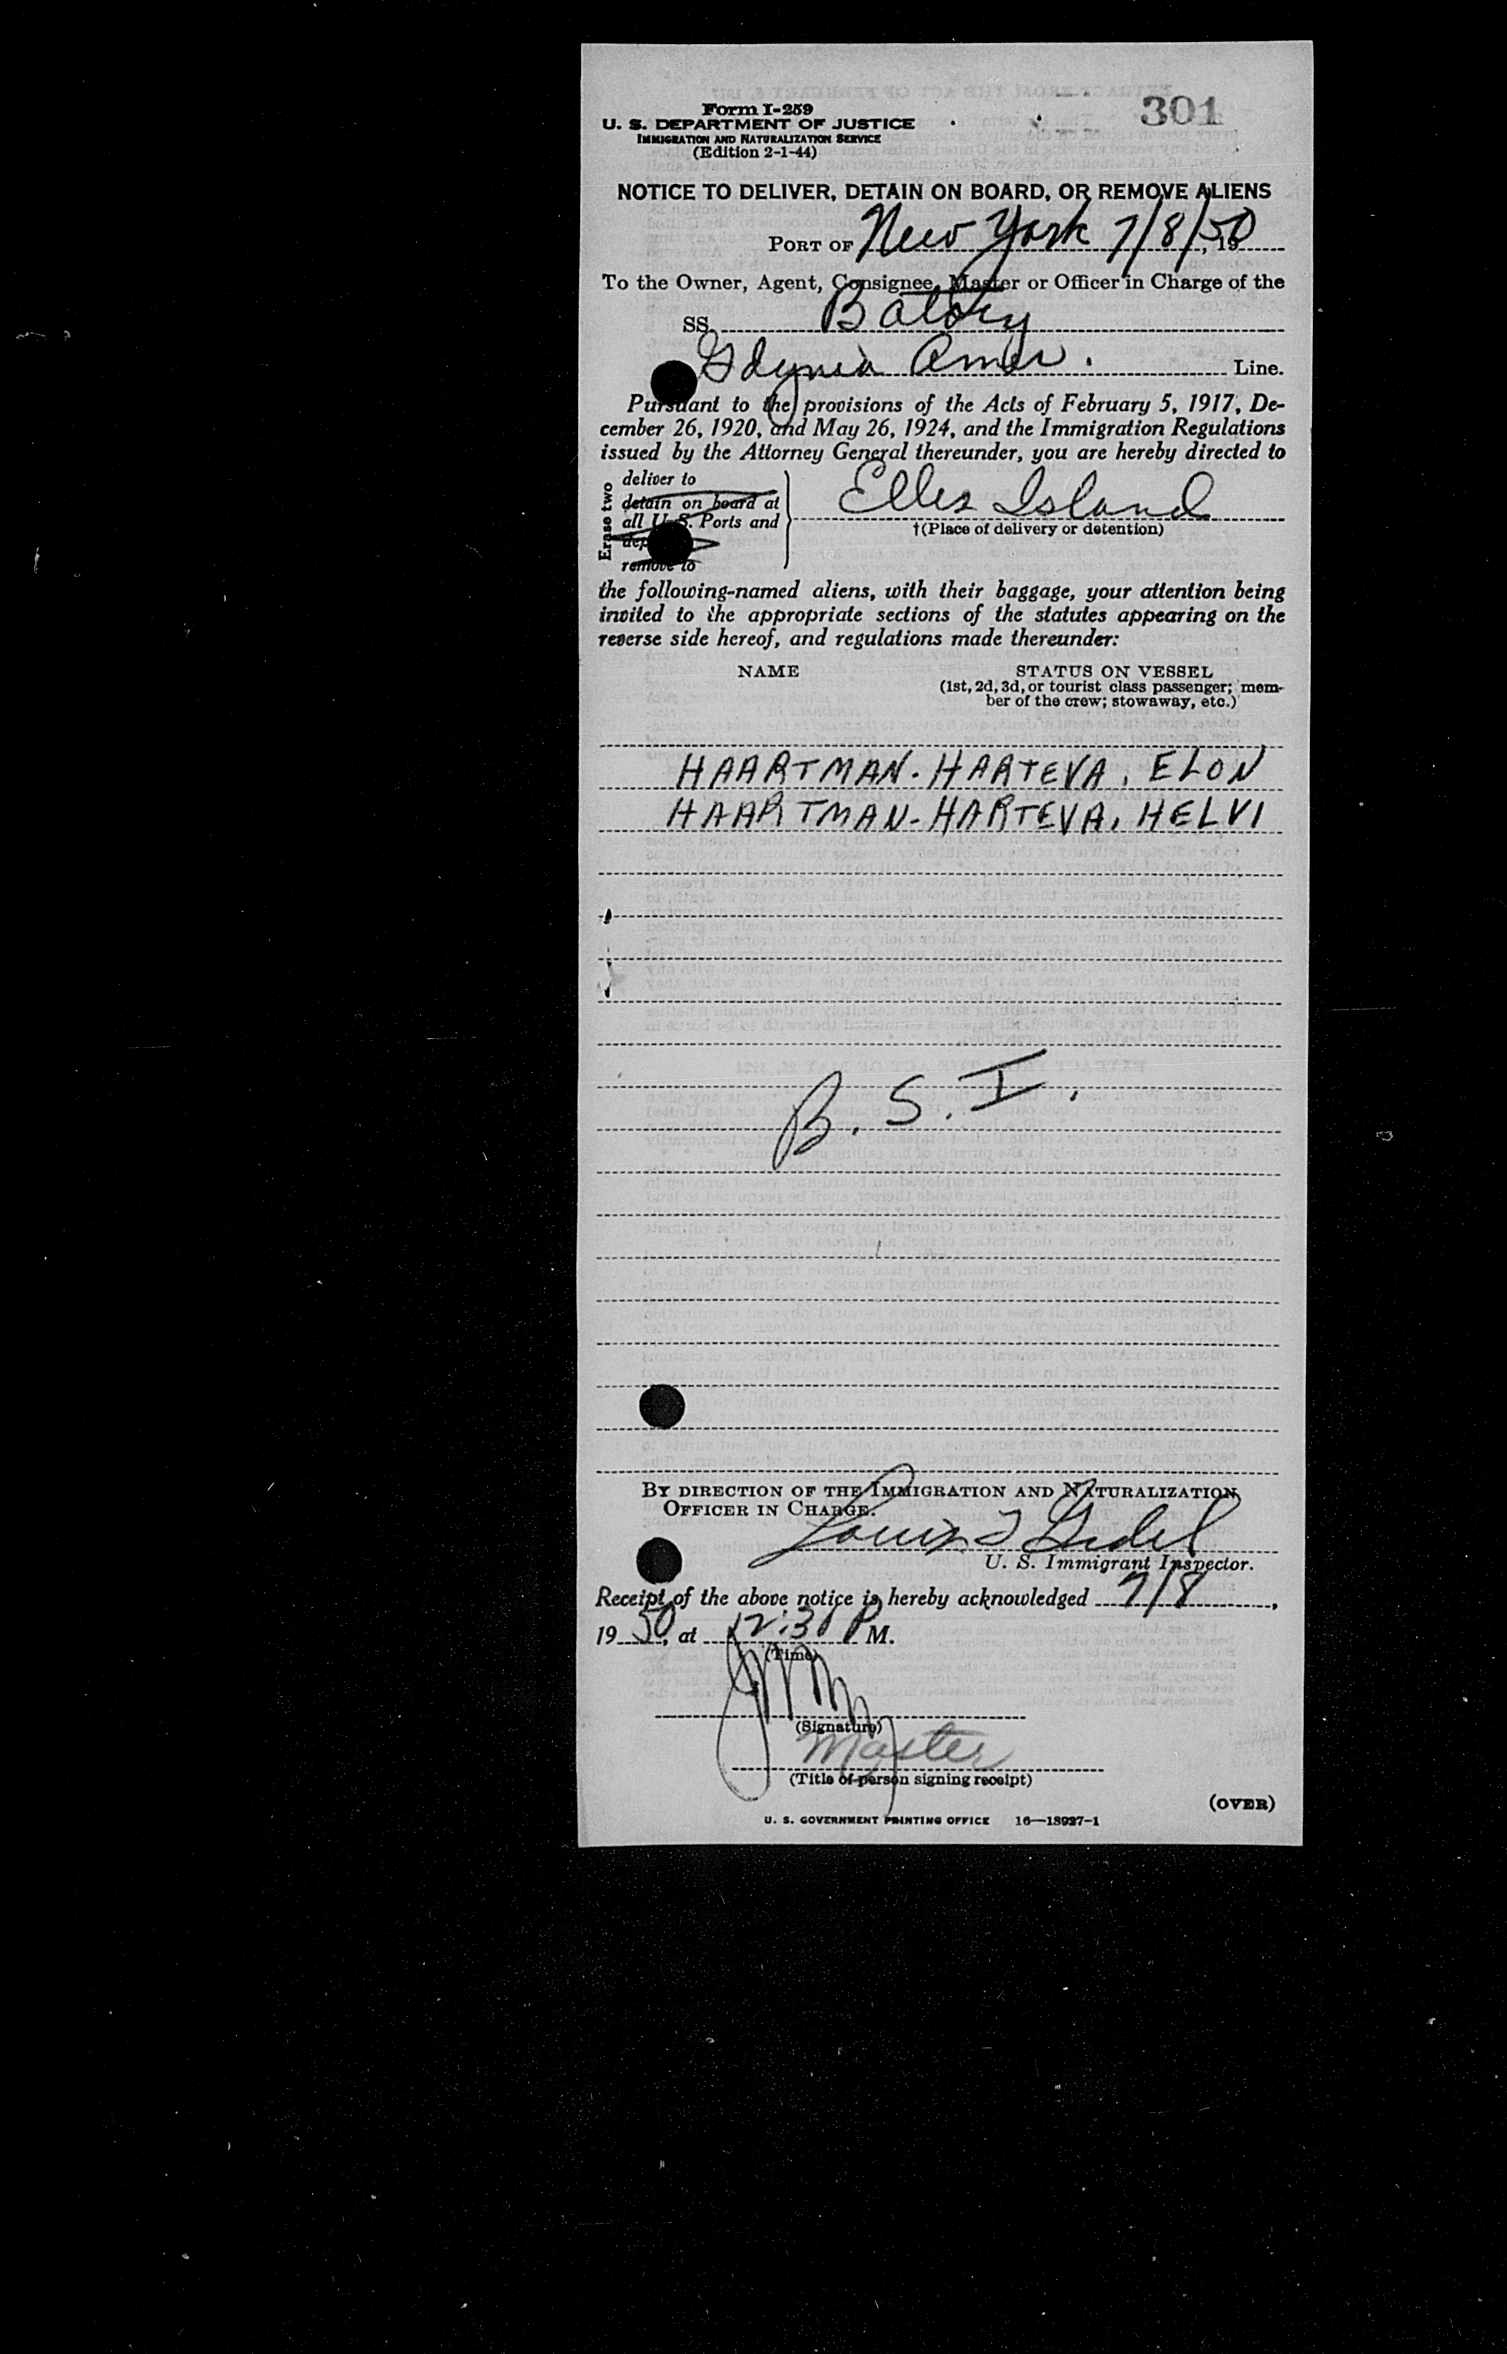 301
Form I-259
U. S. DEPARTMENT OF JUSTICE
IMMIGRATION AND NATURALIZATION SERVICE
(Edition 2-1-44)
NOTICE TO DELIVER, DETAIN ON BOARD, OR REMOVE ALIENS
PORT OF New York 7/8/50, 19
To the Owner, Agent, Consignee, Master or Officer in Charge of the
SS Batory
Gdynia Amer. Line.
Pursuant to the provisions of the Acts of February 5, 1917, De-
cember 26, 1920, and May 26, 1924, and the Immigration Regulations
issued by the Attorney General thereunder, you are hereby directed to
Erase two
deliver to
detain on board at
all U. S. Ports and
remove to
Ellis Island
†(Place of delivery or detention)
the following-named aliens, with their baggage, your attention being
invited to the appropriate sections of the statutes appearing on the
reverse side hereof, and regulations made thereunder:
NAME STATUS ON VESSEL
(1st, 2d, 3d, or tourist class passenger; mem-
ber of the crew; stowaway, etc.)
HAARTMAN-HARTEVA, ELON
HAARTMAN-HARTEVA, HELVI
B. S. I.
BY DIRECTION OF THE IMMIGRATION AND NATURALIZATION
OFFICER IN CHARGE.
Louis
U. S. Immigrant Inspector.
Receipt of the above notice is hereby acknowledged 7/8,
1950, at 12:30 P M.
(Time)
(Signature)
Master
(Title of person signing receipt)
(OVER)
U. S. GOVERNMENT PRINTING OFFICE 16—18927-1